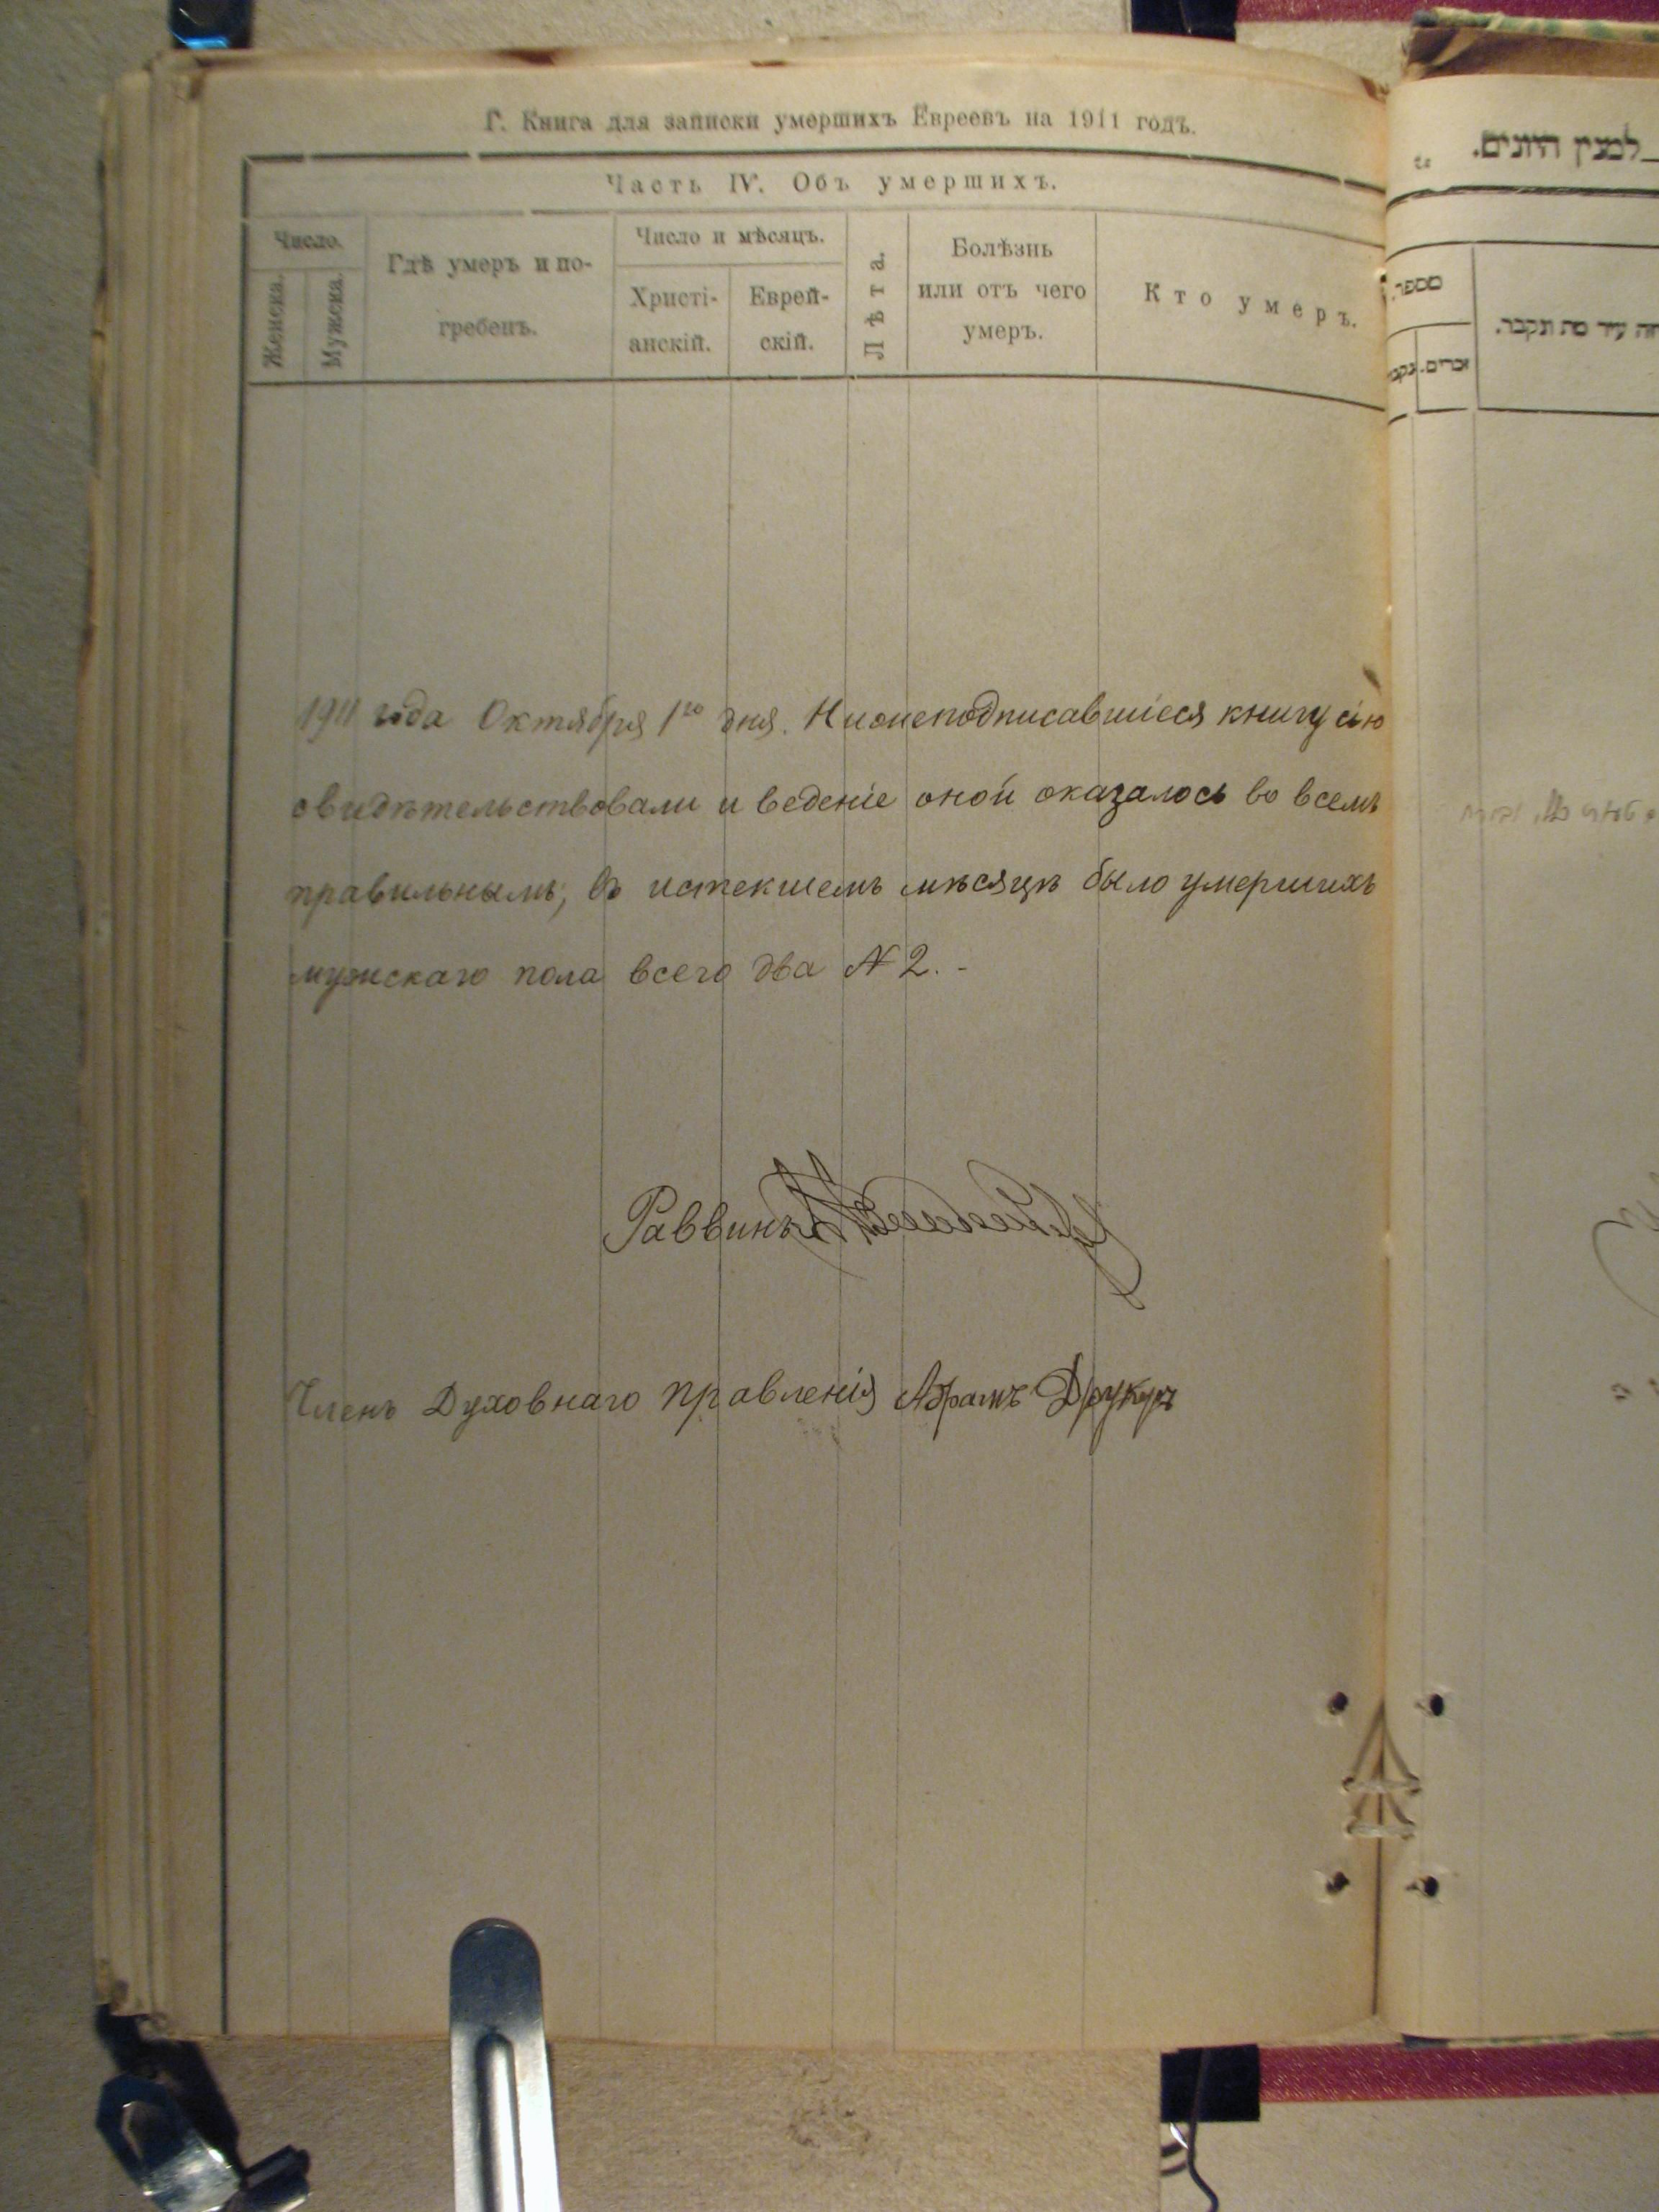 Г. Книга для записки умершихъ Евреевъ на 1911 годъ.
Часть IV. Объ умершихъ.
Число.
Женска.
Мужска.
Гдѣ умеръ и по-
гребенъ.
Число и мѣсяцъ.
Христі-
анскій.
Еврей-
скій.
Лѣта.
Болѣзнь
или отъ чего
умеръ.
Кто умеръ.
1911 года Октября 1го дня. Нижеподписавшіеся книгу сію
свидѣтельствовали и веденіе оной оказалось во всемъ
правильнымъ; въ истекшемъ мѣсяцѣ было умершихъ
мужскаго пола всего два № 2. -
Раввинъ
Членъ Духовнаго Правленія Абрамъ Друкеръ
למנין היונים.
מספר.
זכרים.
עיר מת ונקבר.